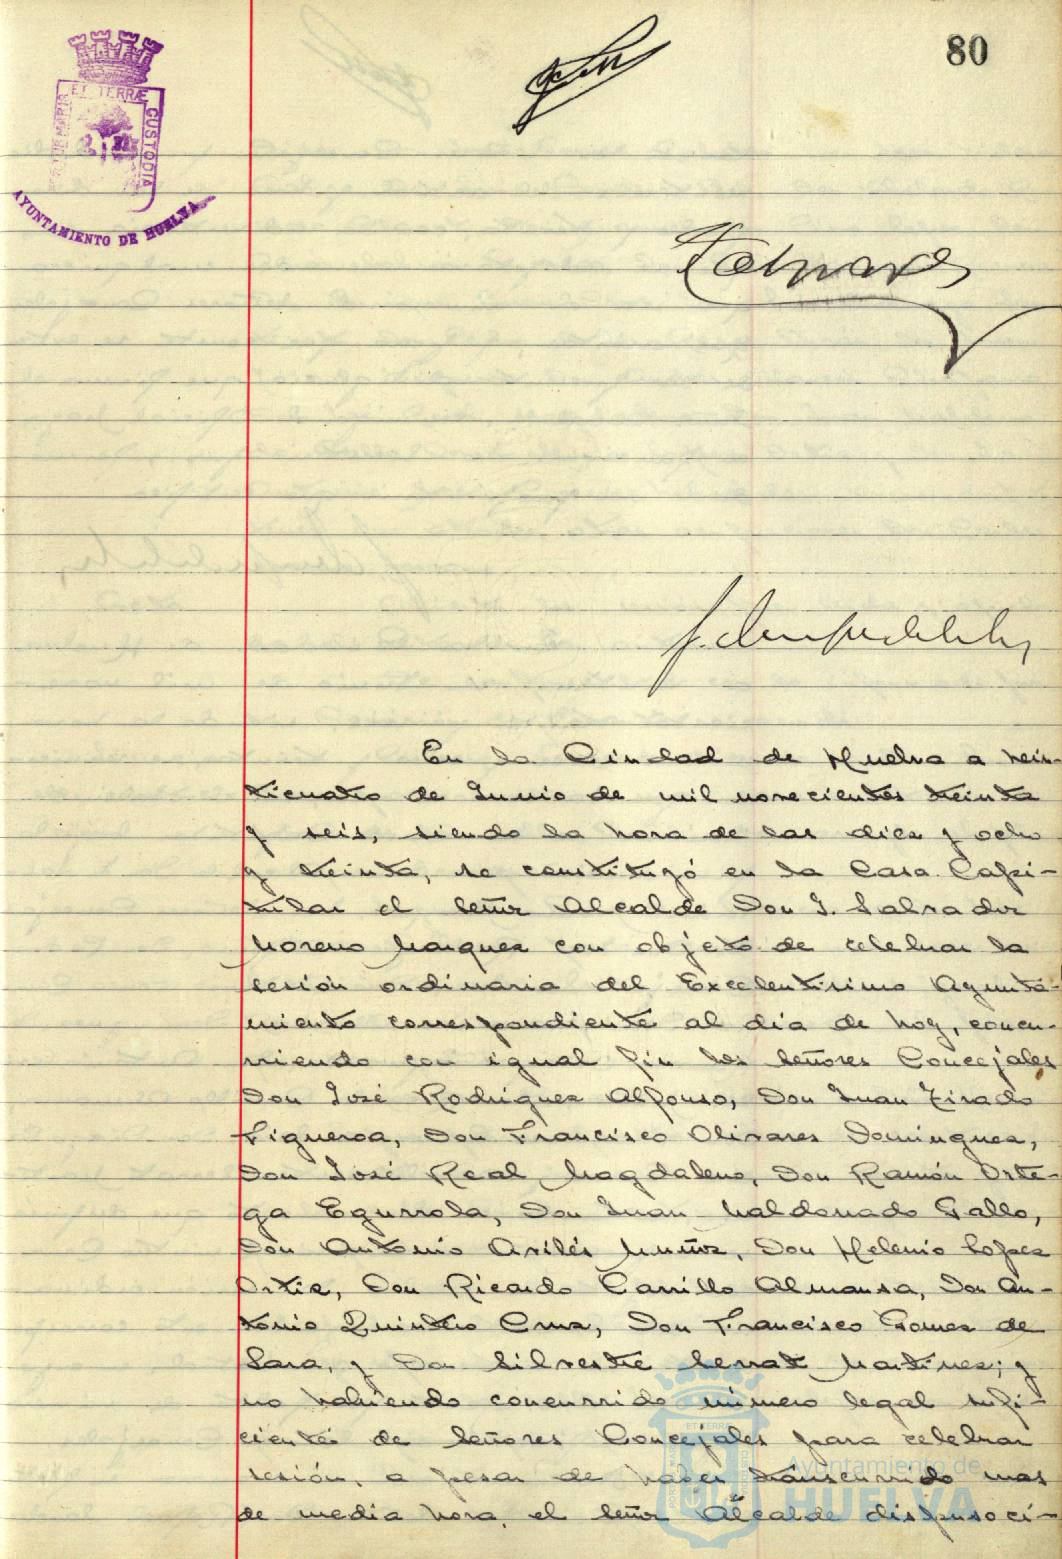 80
PORTUS MARIS
ET TERRÆ
CUSTODIA
AYUNTAMIENTO DE HUELVA
En la Ciudad de Huelva a vein-
ticuatro de Junio de mil novecientos treinta
y seis, siendo la hora de las diez y ocho
y treinta, se constituyó en la Casa Capi-
tular el señor Alcalde Don J. Salvador
Moreno Marquez con objeto de celebrar la
sesión ordinaria del Excelentísimo Ayunta-
miento correspondiente al día de hoy, concu-
rriendo con igual fin los señores Concejales
Don José Rodriguez Alfonso, Don Juan Tirado
Figueroa, Don Francisco Olivares Dominguez,
Don José Real Magdaleno, Don Ramón Orte-
ga Egurrola, Don Juan Maldonado Gallo,
Don Antonio Avilés Muñoz, Don Helenio Lopez
Ortiz, Don Ricardo Carrillo Almansa, Don An-
tonio Quintero Cruz, Don Francisco Gomez de
Lara, y Don Silvestre Serrat Martinez; y
no habiendo concurrido número legal sufi-
ciente de señores Concejales para celebrar
sesión, a pesar de haber transcurrido mas
de media hora, el señor Alcalde dispuso ci-
Ayuntamiento de
HUELVA